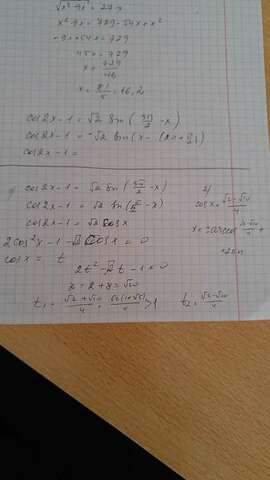 √x² 9x = 27 x
x² 9x = 729 - 54x + x²
-9x + 54x = 729
45x = 729
x = 729/45
x = 81/5 = 16,2
cos2x - 1 = √2 sin(3π/2 - x)
cos2x - 1 = -√2 sin(x -
cos2x - 1 =
cos2x - 1 = √2 sin(
cos2x - 1 = √2 sin(
cos2x - 1 = √2 cosx
2cos²x - 1 - √2 cosx = 0
cosx = t
2t² - √2 t - 1 = 0
= 2 + 8 = √10
t₁ = (√2 + √10)/4 > 1
t₂ = (√2 - √10)/4
2)
cosx = (√2 - √10)/4
x = ± arccos (√2 - √10)/4 +
+ 2πn